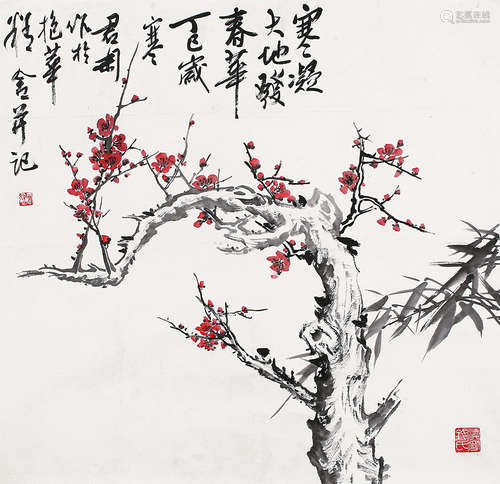 寒凝
大地發
春華
丁巳歲
寒
君
作於
抱華
精舍并記